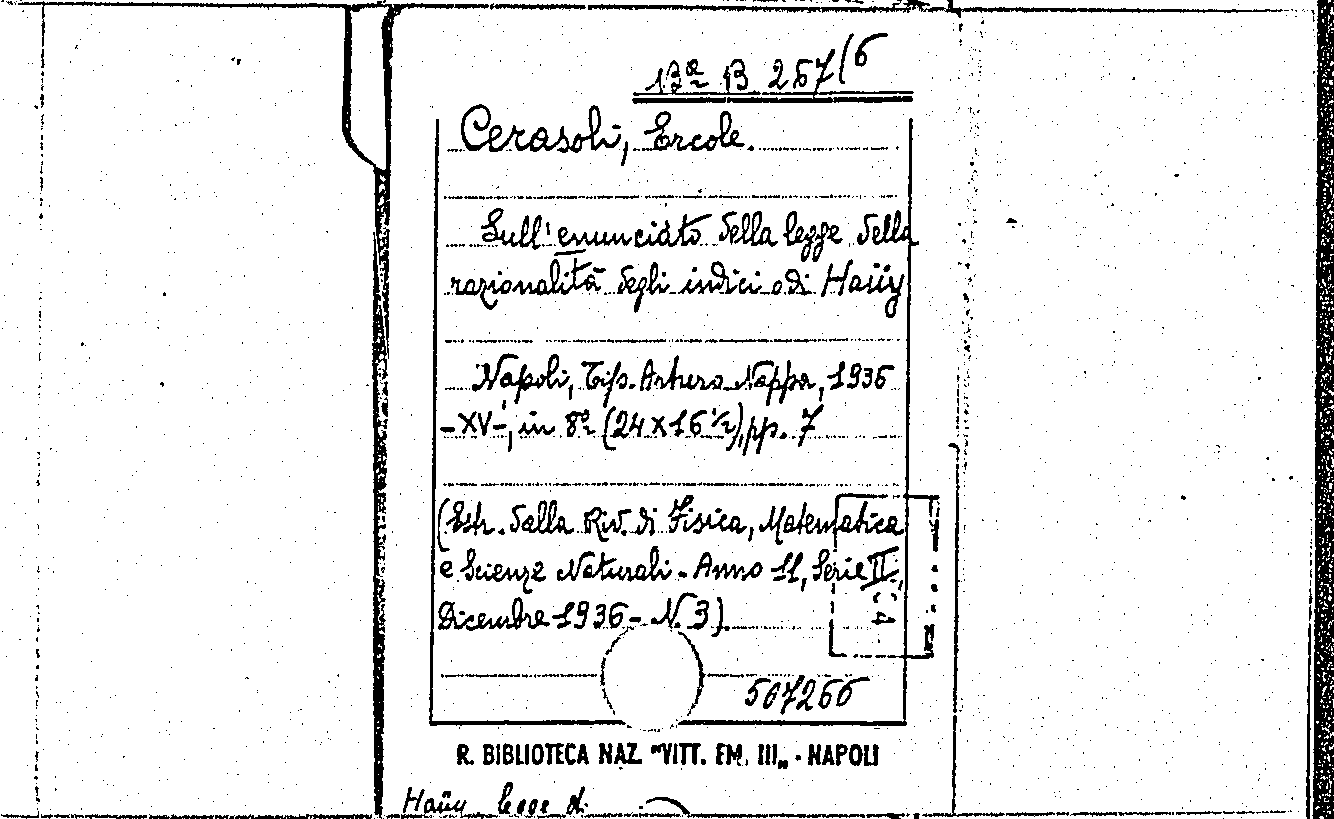 13ª B 267(6
Cerasoli, Ercole.
Sull'enunciato della legge della
razionalità degli indici o di Haüy
Napoli, Tip. Arturo Nappa, 1936
-XV-, in 8º (24 x 16 ½), pp. 7
(Estr. dalla Riv. di Fisica, Matematica
e Scienze Naturali - Anno 11, Serie II,
Dicembre 1936 - N. 3).
567266
R. BIBLIOTECA NAZ. "VITT. EM. III„ - NAPOLI
Haüy legge di